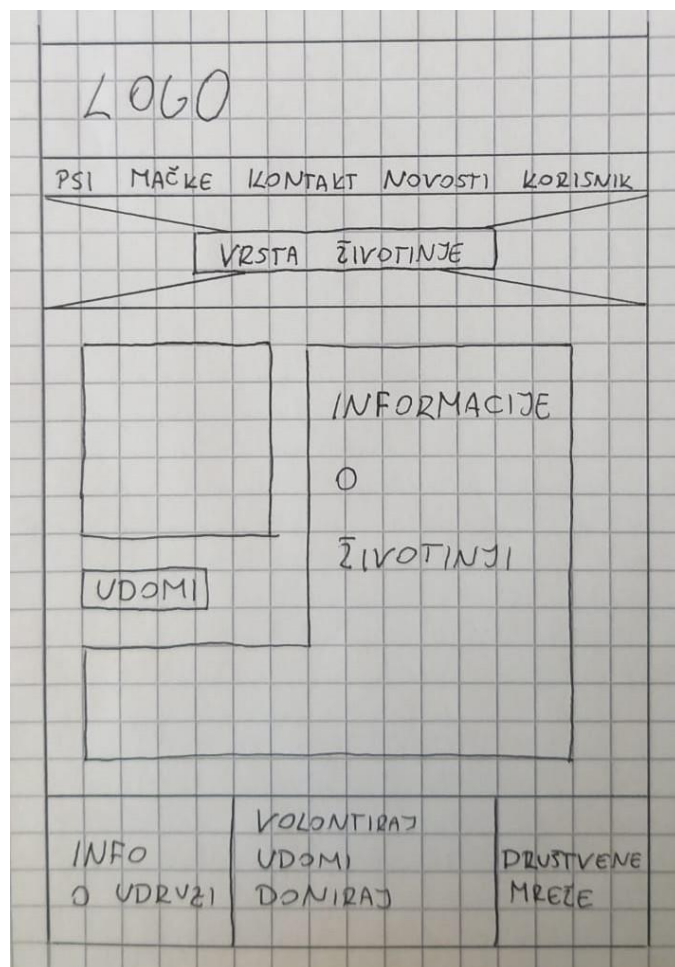 LOGO
PSI MAČKE KONTAKT NOVOSTI KORISNIK
VRSTA ŽIVOTINJE
INFORMACIJE
O
ŽIVOTINJI
UDOMI
INFO
O UDRUZI
VOLONTIRAJ
UDOMI
DONIRAJ
DRUŠTVENE
MREŽE